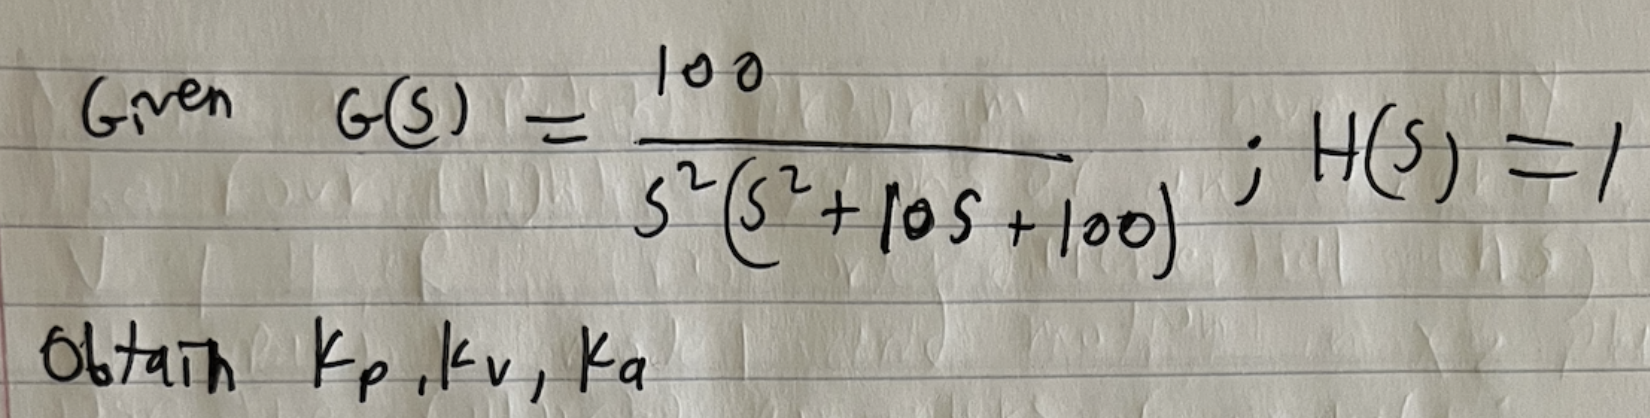 Given G(S) = 100 / S²(S² + 10S + 100) ; H(S) = 1
Obtain Kp, Kv, Ka